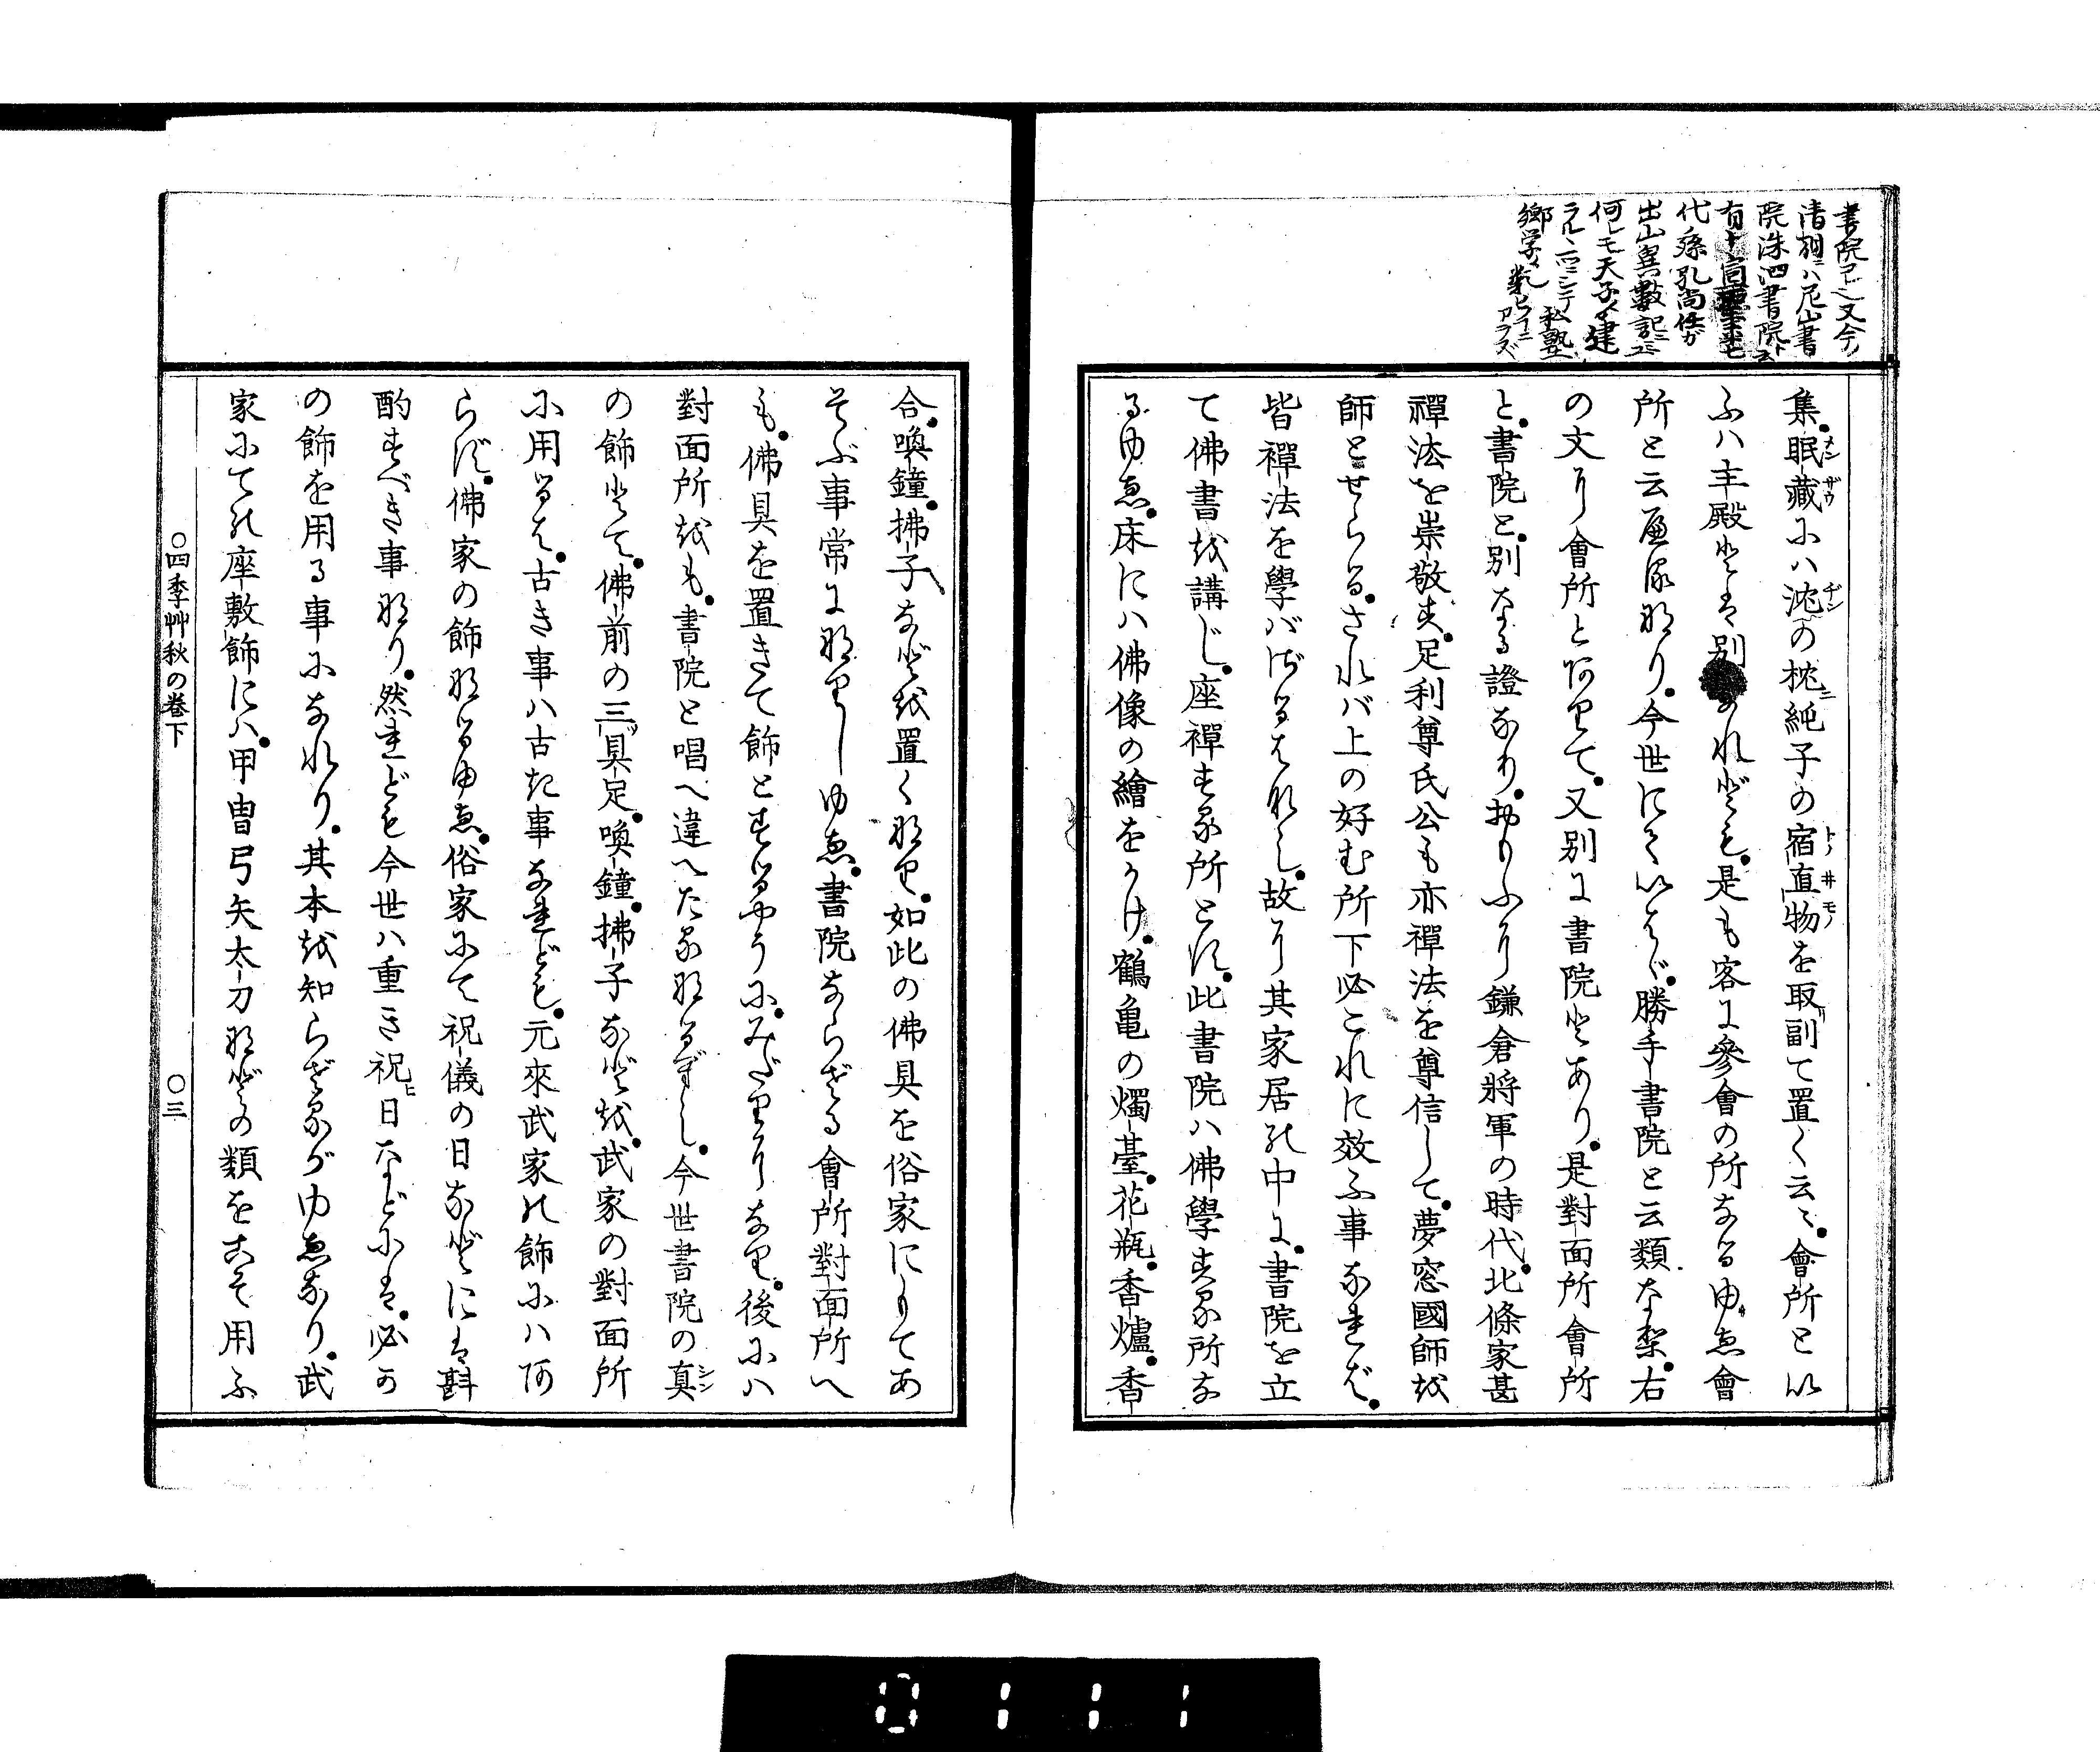 書院アリ又今ノ
清朝ニハ尼山書
院洙泗書院ト云
有
代孫孔尚任ガ
出山異數記ニ
何レモ天子ノ建
ラルヽ所ニシテ私塾
郷学ノ類ヒニアラズ
集眠藏にハ沈の枕純子の宿直物を取副て置く云々會所とい
ふハ主殿とは別なれども是も客に參會の所なるゆゑ會
所と云成り今世にていはゞ勝手書院と云類な梨右
の文に會所とありて又別に書院とあり是對面所會所
と書院と別なる證なりおもふに鎌倉將軍の時代北條家甚
禪法を崇敬す足利尊氏公も亦禪法を尊信して夢窓國師を
師とせらるされバ上の好む所下必これに效ふ事なれば
皆禪法を學バざるはなし故に其家居の中に書院を立
て佛書を講じ座禪する所とす此書院ハ佛學する所な
るゆゑ床にハ佛像の繪をかけ鶴亀の燭臺花瓶香爐香
合喚鐘拂子などを置くなり如此の佛具を俗家にもてあ
そぶ事常になりしゆゑ書院ならざる會所對面所へ
も佛具を置きて飾とするやうにみだりになり後にハ
對面所をも書院と唱へ違へたるなるべし今世書院の真
の飾とて佛前の三具足喚鐘拂子などを武家の對面所
に用るは古き事ハ古き事なれども元來武家の飾にハあ
らず佛家の飾なるゆゑ俗家にて祝儀の日などには斟
酌すべき事なり然れども今世ハ重き祝日などには必か
の飾を用る事になれり其本を知らざるがゆゑなり武
家にての座敷飾にハ甲冑弓矢太刀などの類をこそ用ふ
○四季艸秋の巻下
○三
0111